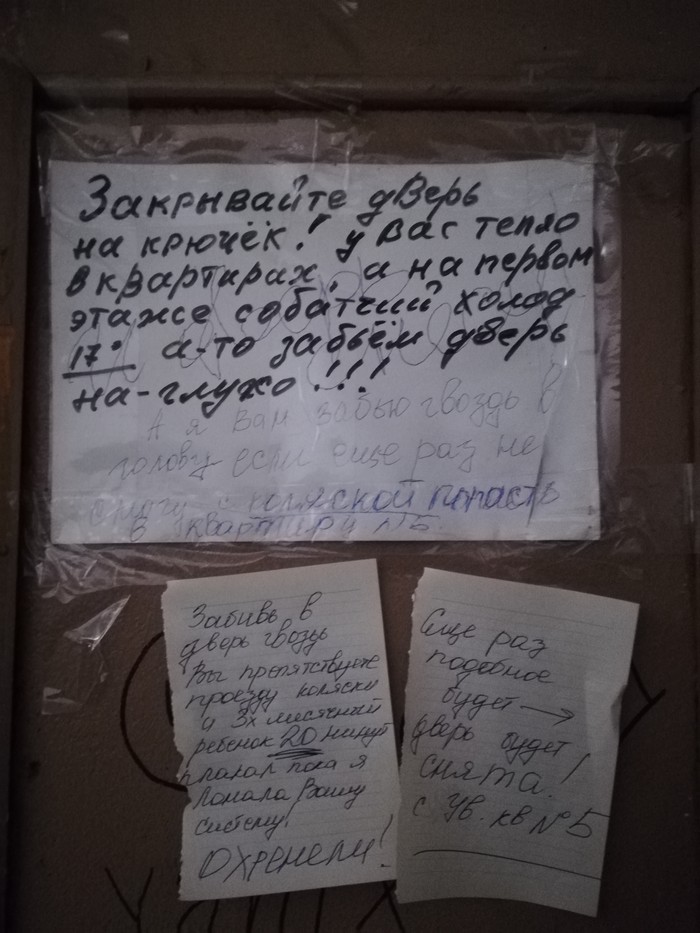 Закрывайте дверь
на крючёк! у вас тепло
в квартирах, а на первом
этаже собатчий холод
17° а-то забьём дверь
на-глухо!!!
А я Вам забью гвоздь в
голову если еще раз не
смогу с коляской попасть
в квартиру №5
Забивь в
дверь гвоздь
Вы препятствуете
проезду коляски
и 3х месячный
ребенок 20 минут
плакал пока я
ломала Вашу
систему!
ОХРЕНЕЛИ!
Еще раз
подобное
будет →
дверь будет
снята!
с ув. кв №5